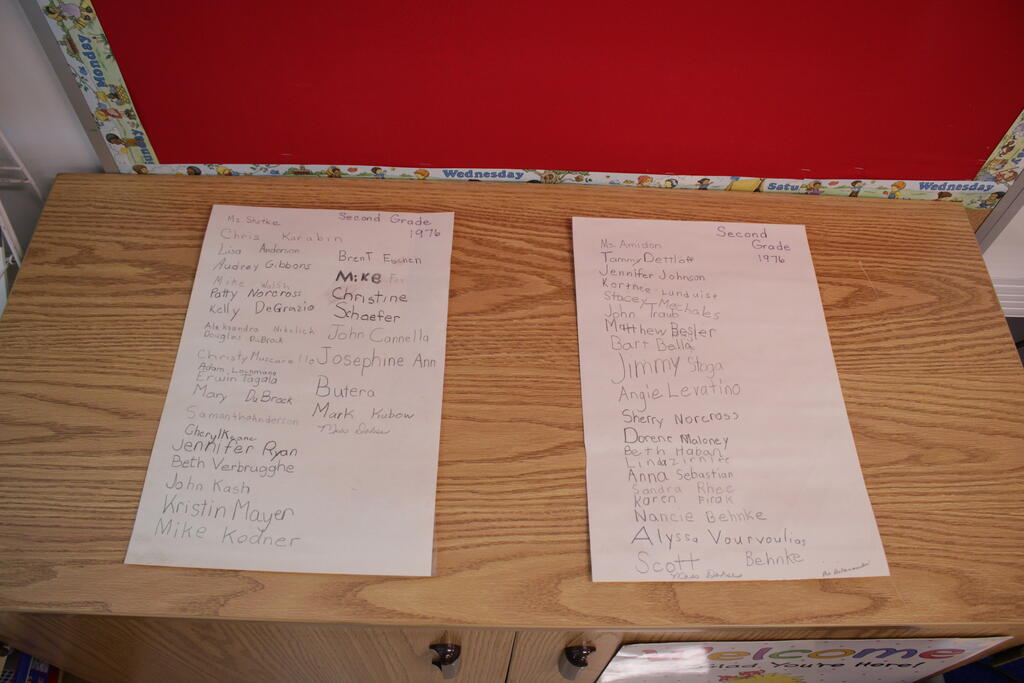 Monday
Sunday
Wednesday
Satu
Wednesday
Second Grade
1976
Ms. Stutke
Chris Karabin
Lisa Anderson
Audrey Gibbons
Mike Walsh
Patty Norcross
Kelly DeGrazio
Aleksandra Nikolich
Douglas DuBrock
Christy Muscarello
Adam Lochmann
Erwin Tagala
Mary DuBrock
Samantha Anderson
Cheryl Keane
Jennifer Ryan
Beth Verbrugghe
John Kash
Kristin Mayer
Mike Kodner
Brent Eschen
Mike Fox
Christine
Schaefer
John Cannella
Josephine Ann
Butera
Mark Kubow
Miss
Second
Grade
1976
Ms. Amidon
Tammy Dettloff
Jennifer Johnson
Kortnee Lundquist
Stacey Machales
John Traub
Matthew Besler
Bart Bella
Jimmy Stoga
Angie Levatino
Sherry Norcross
Dorene Maloney
Beth Haban
Linda
Anna Sebastian
Sandra Rhee
Karen Pirak
Nancie Behnke
Alyssa Vourvoulias
Scott Behnke
Miss
Welcome
Glad You're Here!